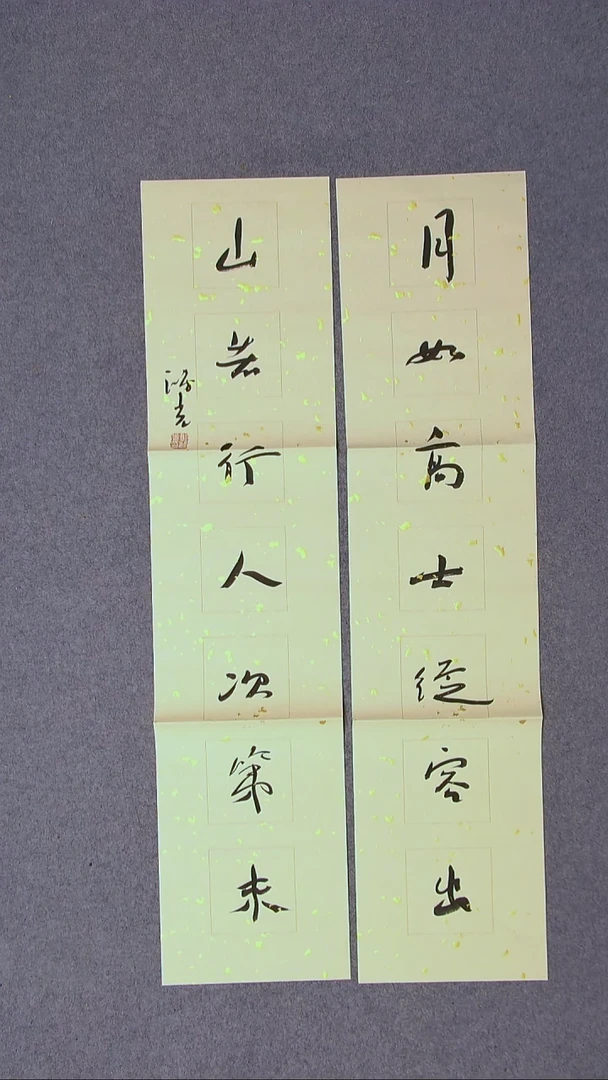 月如高士從容出
山若行人次第来